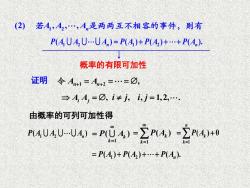 (2) 若A₁, A₂, ⋯, Aₙ是两两互不相容的事件，则有
P(A₁∪A₂∪⋯∪Aₙ) = P(A₁) + P(A₂) + ⋯ + P(Aₙ).
概率的有限可加性
证明 令 Aₙ₊₁ = Aₙ₊₂ = ⋯ = ∅,
⇒ AᵢAⱼ = ∅, i ≠ j, i, j = 1, 2, ⋯.
由概率的可列可加性得
P(A₁∪A₂∪⋯∪Aₙ) = P(⋃_{k=1}^{∞} Aₖ) = ∑_{k=1}^{∞} P(Aₖ) = ∑_{k=1}^{n} P(Aₖ) + 0
= P(A₁) + P(A₂) + ⋯ + P(Aₙ).